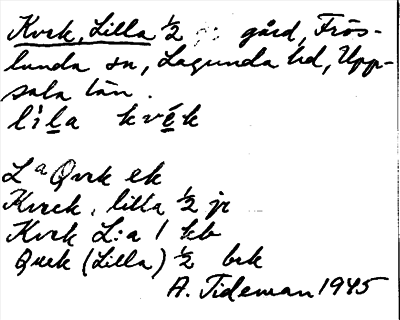 Kvek, Lilla ½ gård, Frös-
lunda sn, Lagunda hd, Upp-
sala län.
lìla kvék
Lª Qvek ek
Kveck, lilla ½ jr
Kvek L:a 1 kb
Qvek (Lilla) ½ brk
A. Tideman 1945